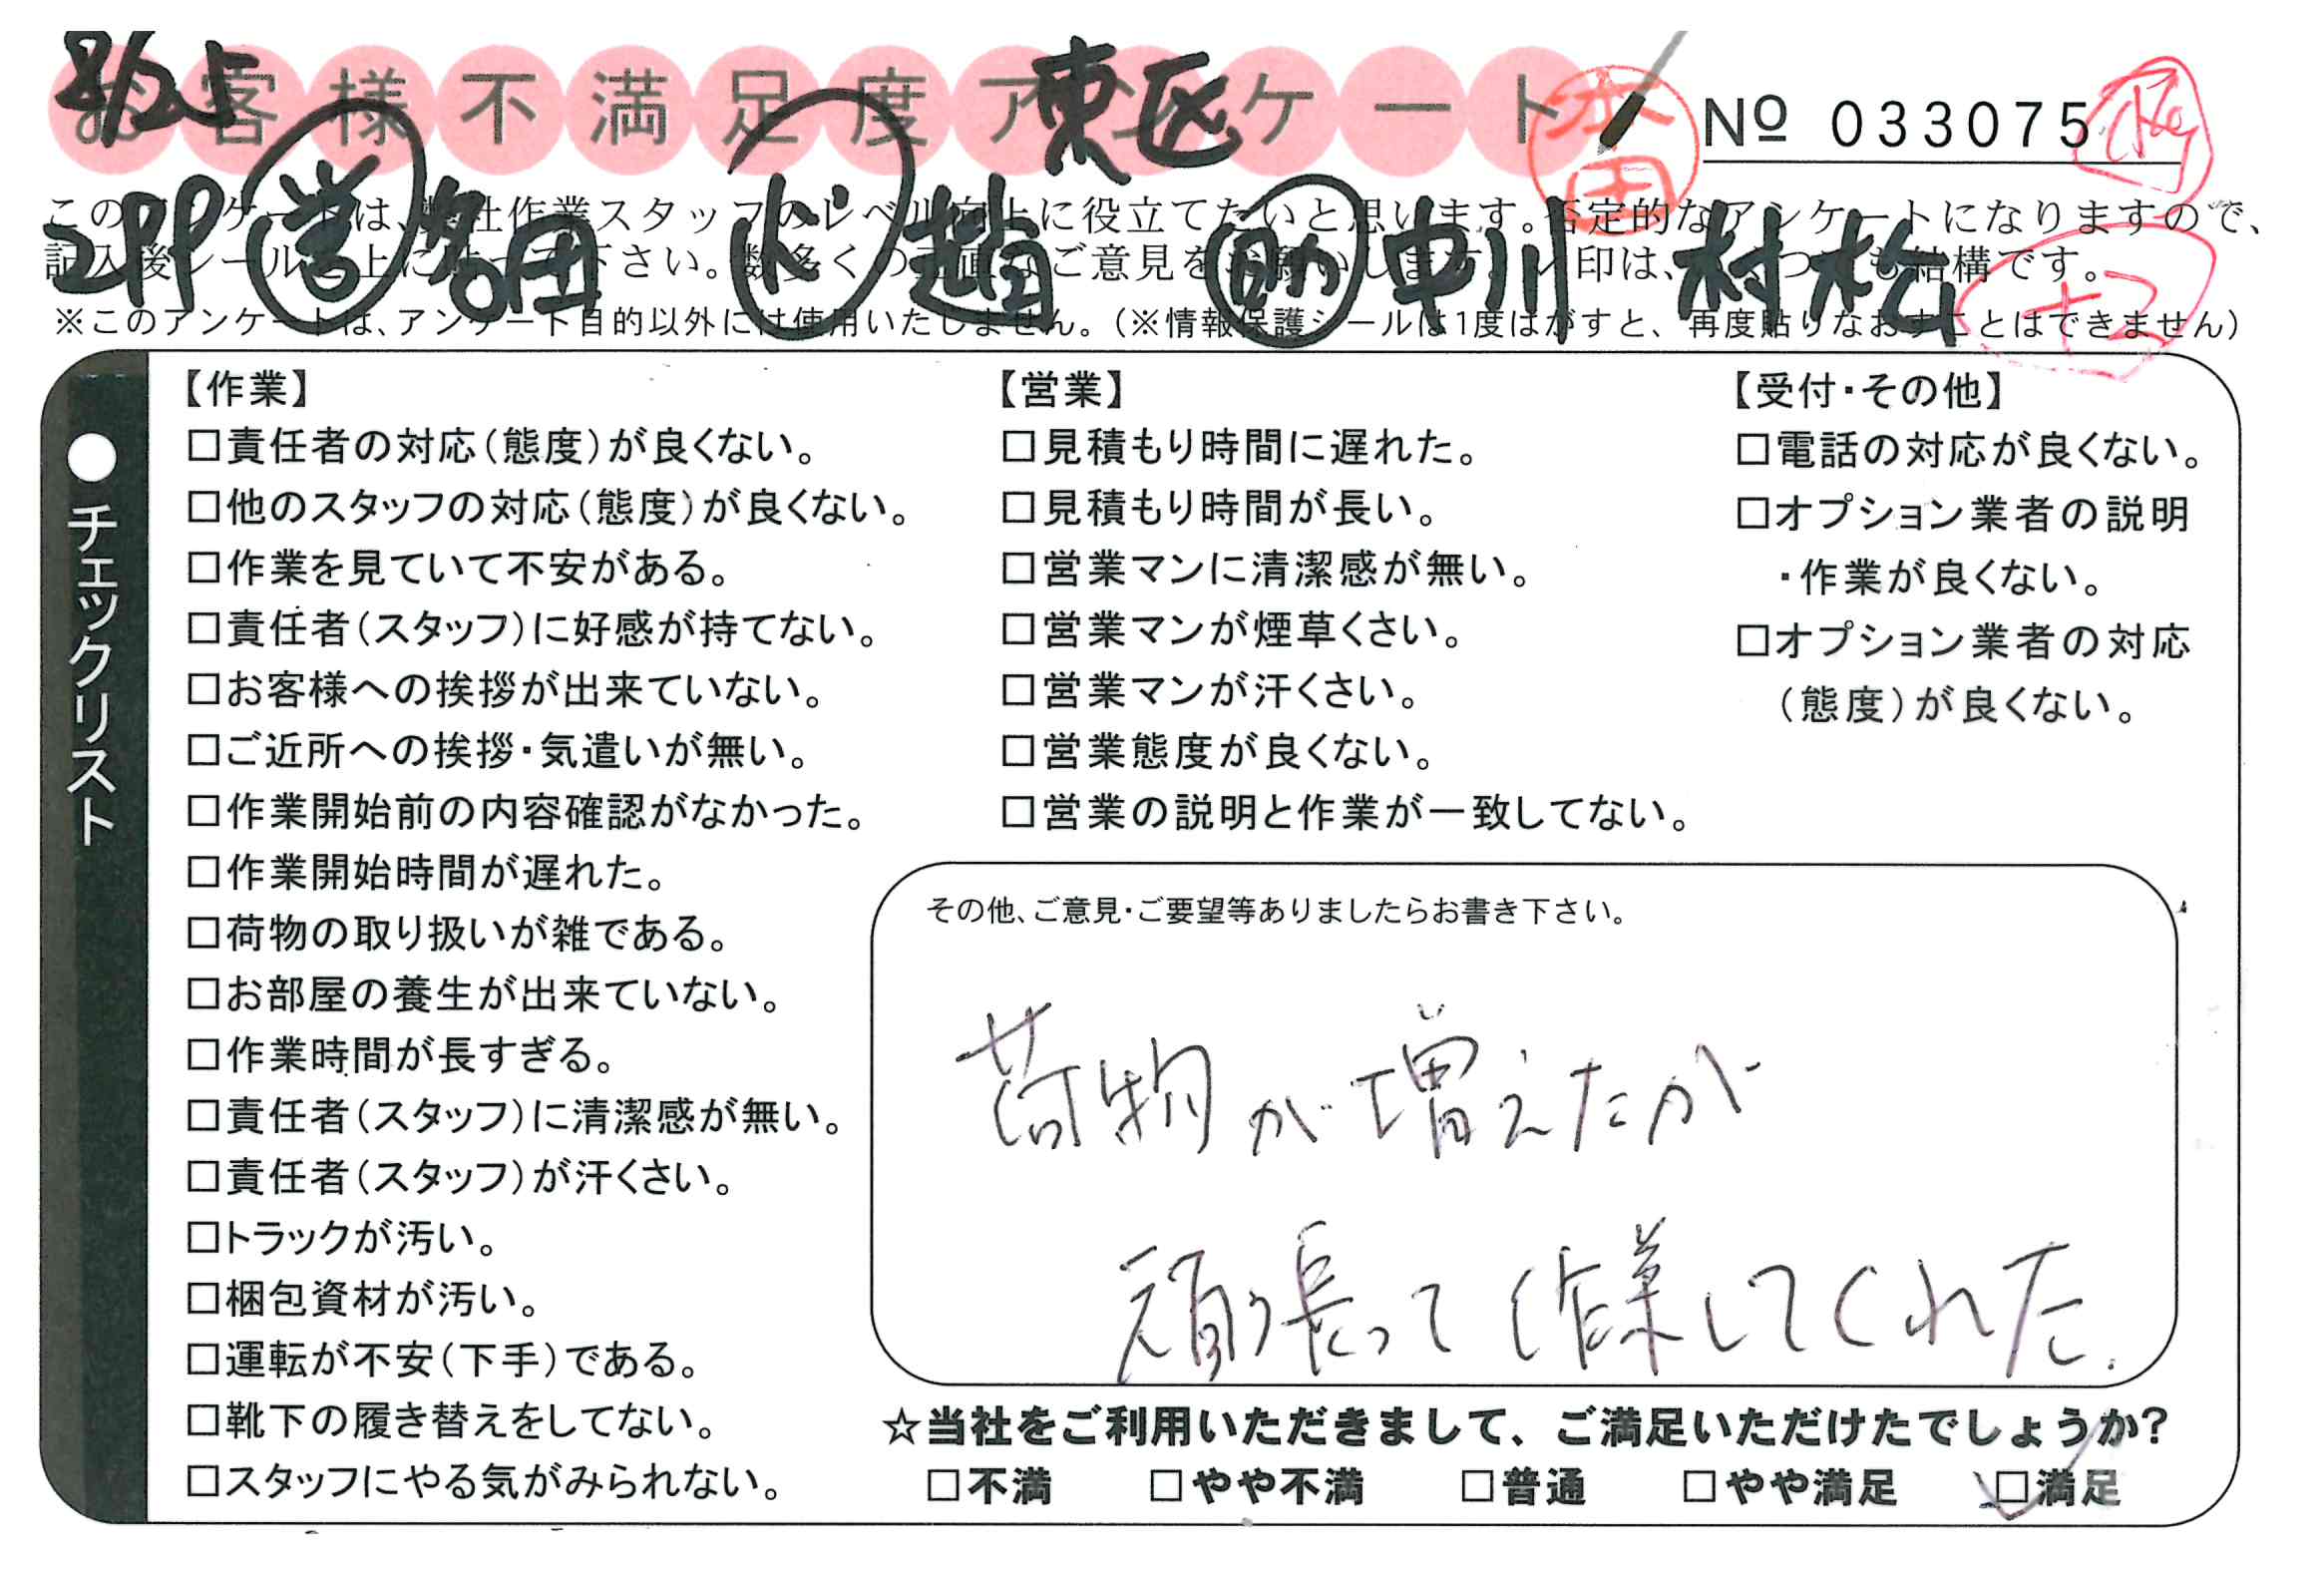 お客様不満足度アンケート
東区
No 033075
このアンケートは、弊社作業スタッフのレベル向上に役立てたいと思います。否定的なアンケートになりますので、
記入後シールを上に貼って下さい。数多くの正直なご意見をお願いします。レ印は、いくつでも結構です。
※このアンケートは、アンケート目的以外には使用いたしません。(※情報保護シールは1度はがすと、再度貼りなおすことはできません)
営 多田 ド 趙 助 中川 村松
●チェックリスト
【作業】
□責任者の対応(態度)が良くない。
□他のスタッフの対応(態度)が良くない。
□作業を見ていて不安がある。
□責任者(スタッフ)に好感が持てない。
□お客様への挨拶が出来ていない。
□ご近所への挨拶・気遣いが無い。
□作業開始前の内容確認がなかった。
□作業開始時間が遅れた。
□荷物の取り扱いが雑である。
□お部屋の養生が出来ていない。
□作業時間が長すぎる。
□責任者(スタッフ)に清潔感が無い。
□責任者(スタッフ)が汗くさい。
□トラックが汚い。
□梱包資材が汚い。
□運転が不安(下手)である。
□靴下の履き替えをしてない。
□スタッフにやる気がみられない。
【営業】
□見積もり時間に遅れた。
□見積もり時間が長い。
□営業マンに清潔感が無い。
□営業マンが煙草くさい。
□営業マンが汗くさい。
□営業態度が良くない。
□営業の説明と作業が一致してない。
【受付・その他】
□電話の対応が良くない。
□オプション業者の説明
・作業が良くない。
□オプション業者の対応
(態度)が良くない。
その他、ご意見・ご要望等ありましたらお書き下さい。
荷物が増えたが
頑張って作業してくれた.
☆当社をご利用いただきまして、ご満足いただけたでしょうか?
□不満 □やや不満 □普通 □やや満足 □満足